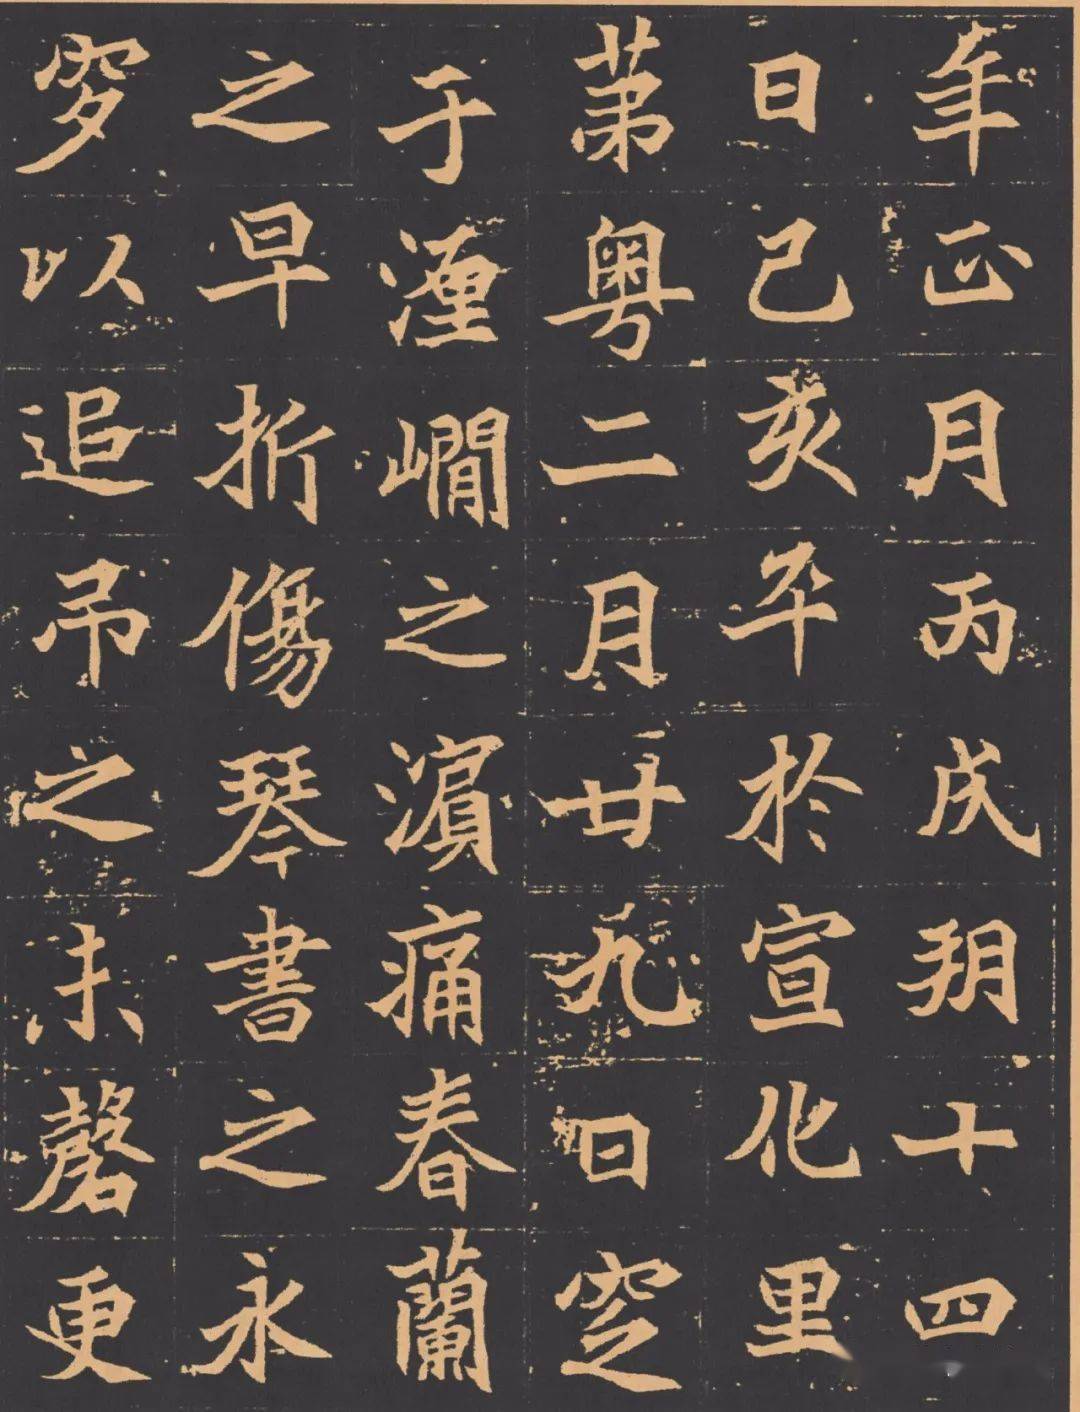 年正月丙戌朔十四
日己亥卒於宣化里
第粵二月廿九日窆
于瀍澗之濱痛春蘭
之早折傷琴書之永
穸以追吊之未磬更